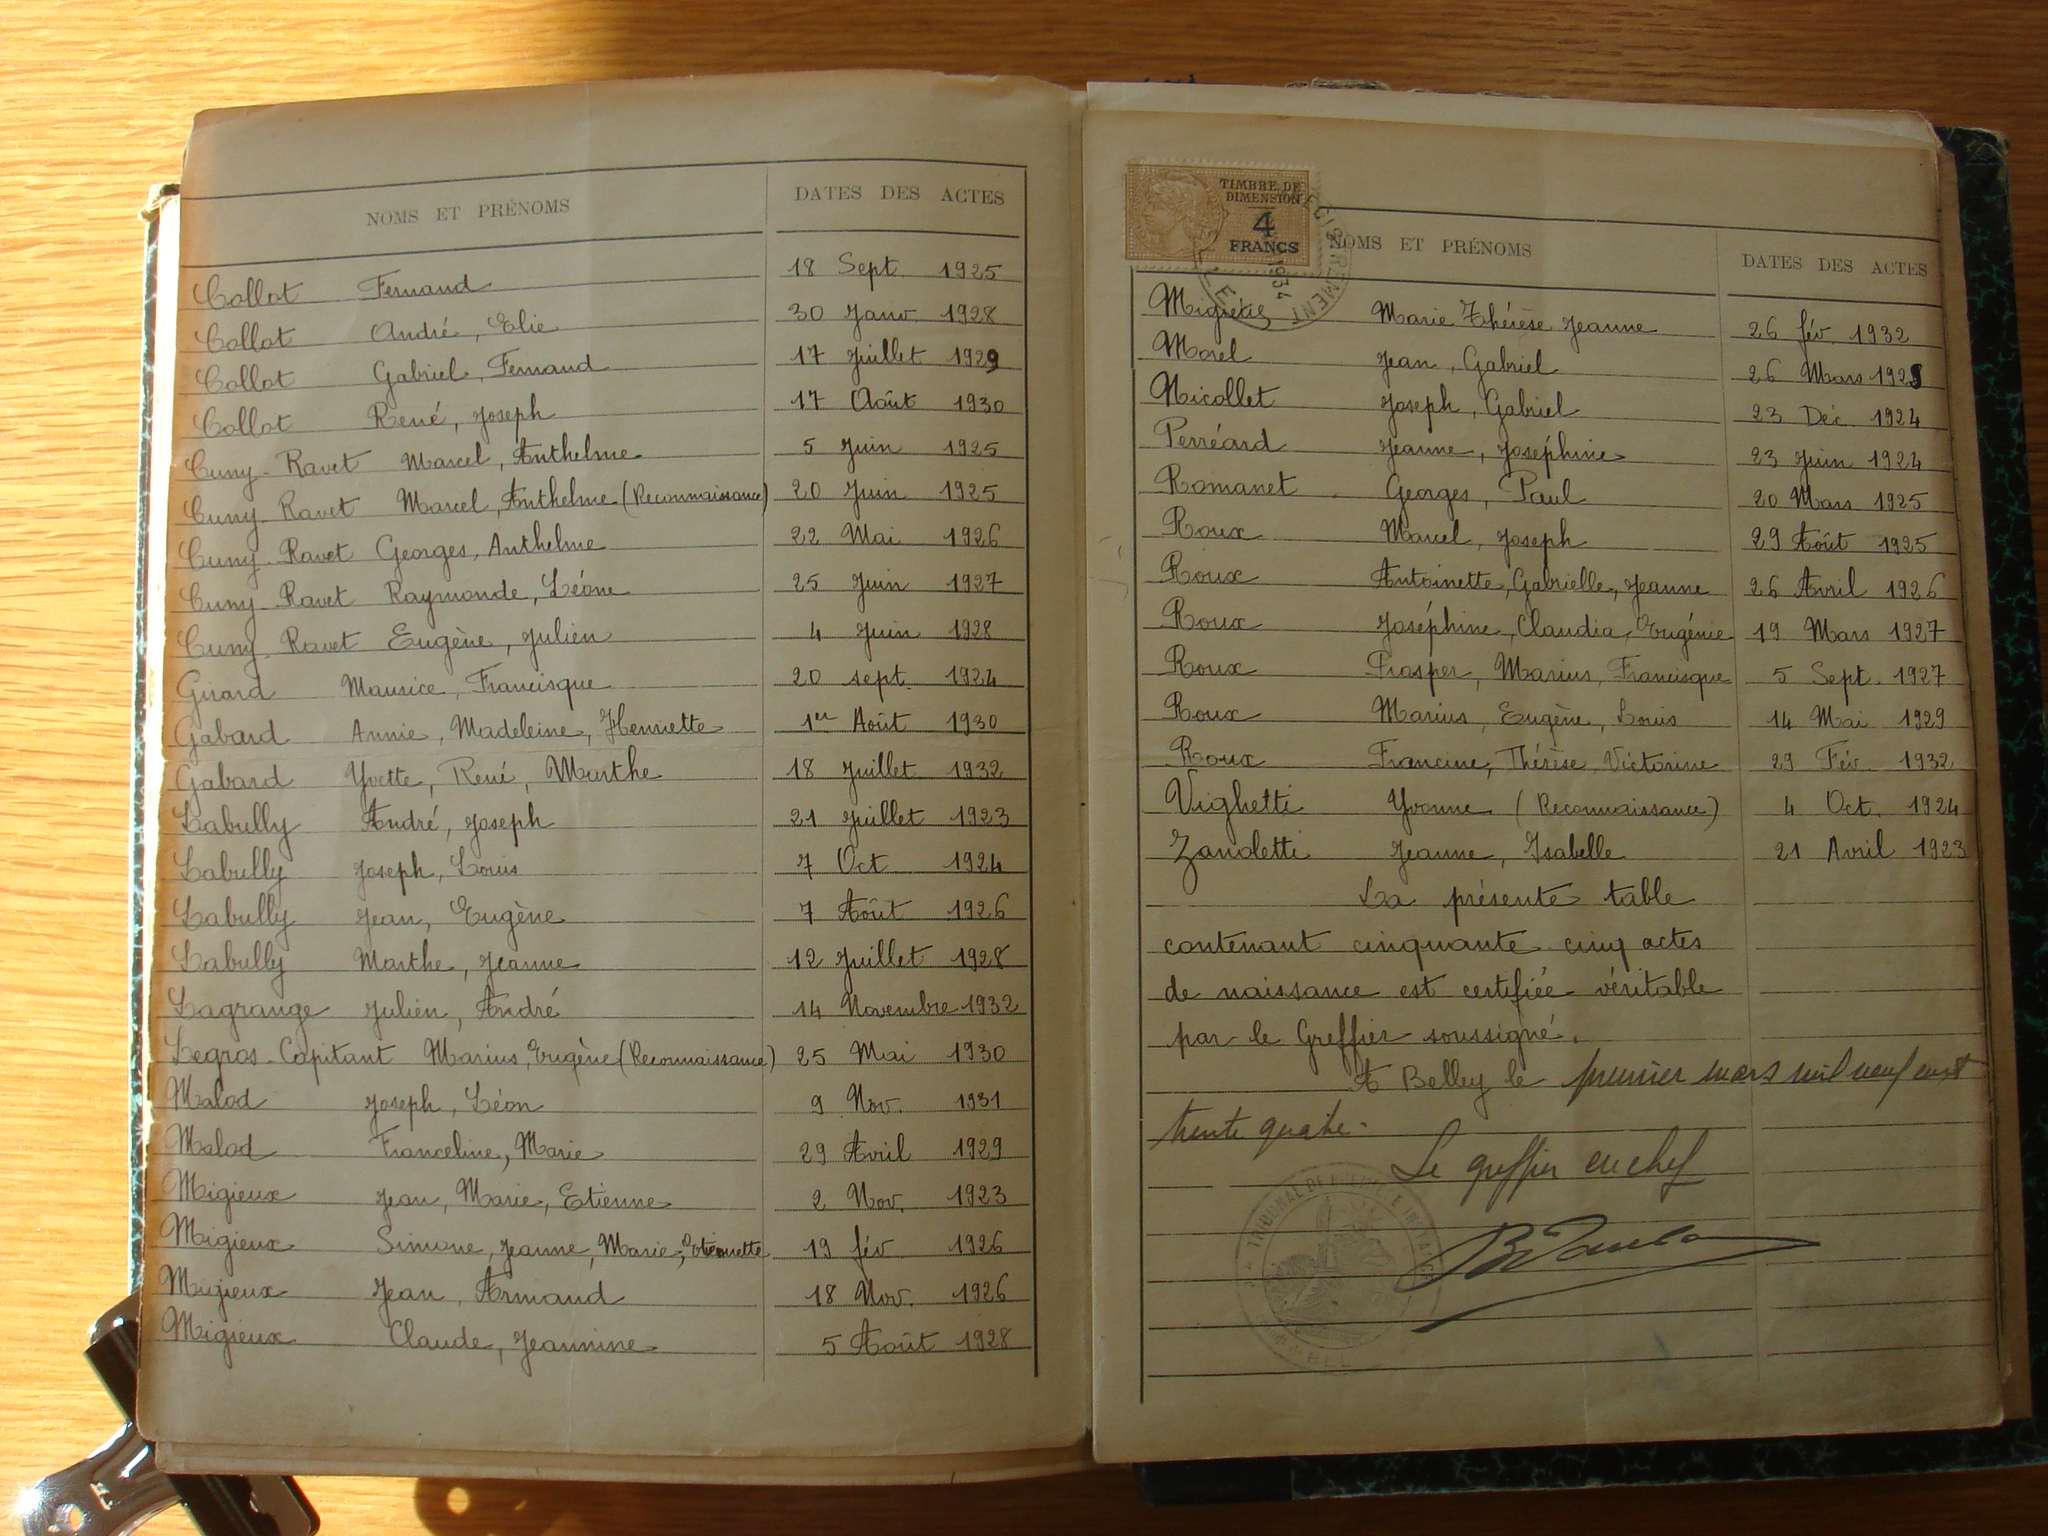 NOMS ET PRÉNOMS DATES DES ACTES
Collot Fernand 18 Sept. 1925
Collot André, Elie 30 Janv. 1928
Collot Gabriel, Fernand 17 Juillet 1929
Collot René, Joseph 17 Août 1930
Cuny-Ravet Marcel, Anthelme 5 Juin 1925
Cuny-Ravet Marcel, Anthelme (Reconnaissance) 20 Juin 1925
Cuny-Ravet Georges, Anthelme 22 Mai 1926
Cuny-Ravet Raymonde, Léone 25 Juin 1927
Cuny-Ravet Eugène, Julien 4 Juin 1928
Girard Maurice, Francisque 20 sept. 1924
Gabard Annie, Madeleine, Henriette 1er Août 1930
Gabard Yvette, René, Marthe 18 Juillet 1932
Labully André, Joseph 21 Juillet 1923
Labully Joseph, Louis 7 Oct 1924
Labully Jean, Eugène 7 Août 1926
Labully Marthe, Jeanne 12 Juillet 1928
Lagrange Julien, André 14 Novembre 1932
Legros-Capitant Marius, Eugène (Reconnaissance) 25 Mai 1930
Malod Joseph, Léon 9 Nov. 1931
Malod Franceline, Marie 29 Avril 1929
Migieux Jean, Marie, Etienne 2 Nov. 1923
Migieux Simone, Jeanne, Marie, 19 fév 1926
Migieux Jean, Armand 18 Nov. 1926
Migieux Claude, Jeannine 5 Août 1928
TIMBRE DE
DIMENSION
4
FRANCS
ENREGISTREMENT
1934
NOMS ET PRÉNOMS DATES DES ACTES
Marie Thérèse Jeanne 26 fév. 1932
Morel Jean, Gabriel 26 Mars
Nicollet Joseph, Gabriel 23 Déc. 1924
Perréard Jeanne, Joséphine 23 Juin 1924
Romanet Georges, Paul 20 Mars 1925
Roux Marcel, Joseph 29 Août 1925
Roux Antoinette, Gabrielle, Jeanne 26 Avril 1926
Roux Joséphine, Claudia, Eugénie 19 Mars 1927
Roux Prosper, Marius, Francisque 5 Sept. 1927
Roux Marius, Eugène, Louis 14 Mai 1929
Roux Francine, Thérèse, Victorine 29 Fév. 1932
Vighetti Yvonne (Reconnaissance) 4 Oct. 1924
Zanoletti Jeanne, Isabelle 21 Avril 1923
La présente table
contenant cinquante cinq actes
de naissance est certifiée véritable
par le Greffier soussigné.
A Belley le premier mars mil neuf cent
trente quatre.
Le greffier en chef
TRIBUNAL DE INSTANCE